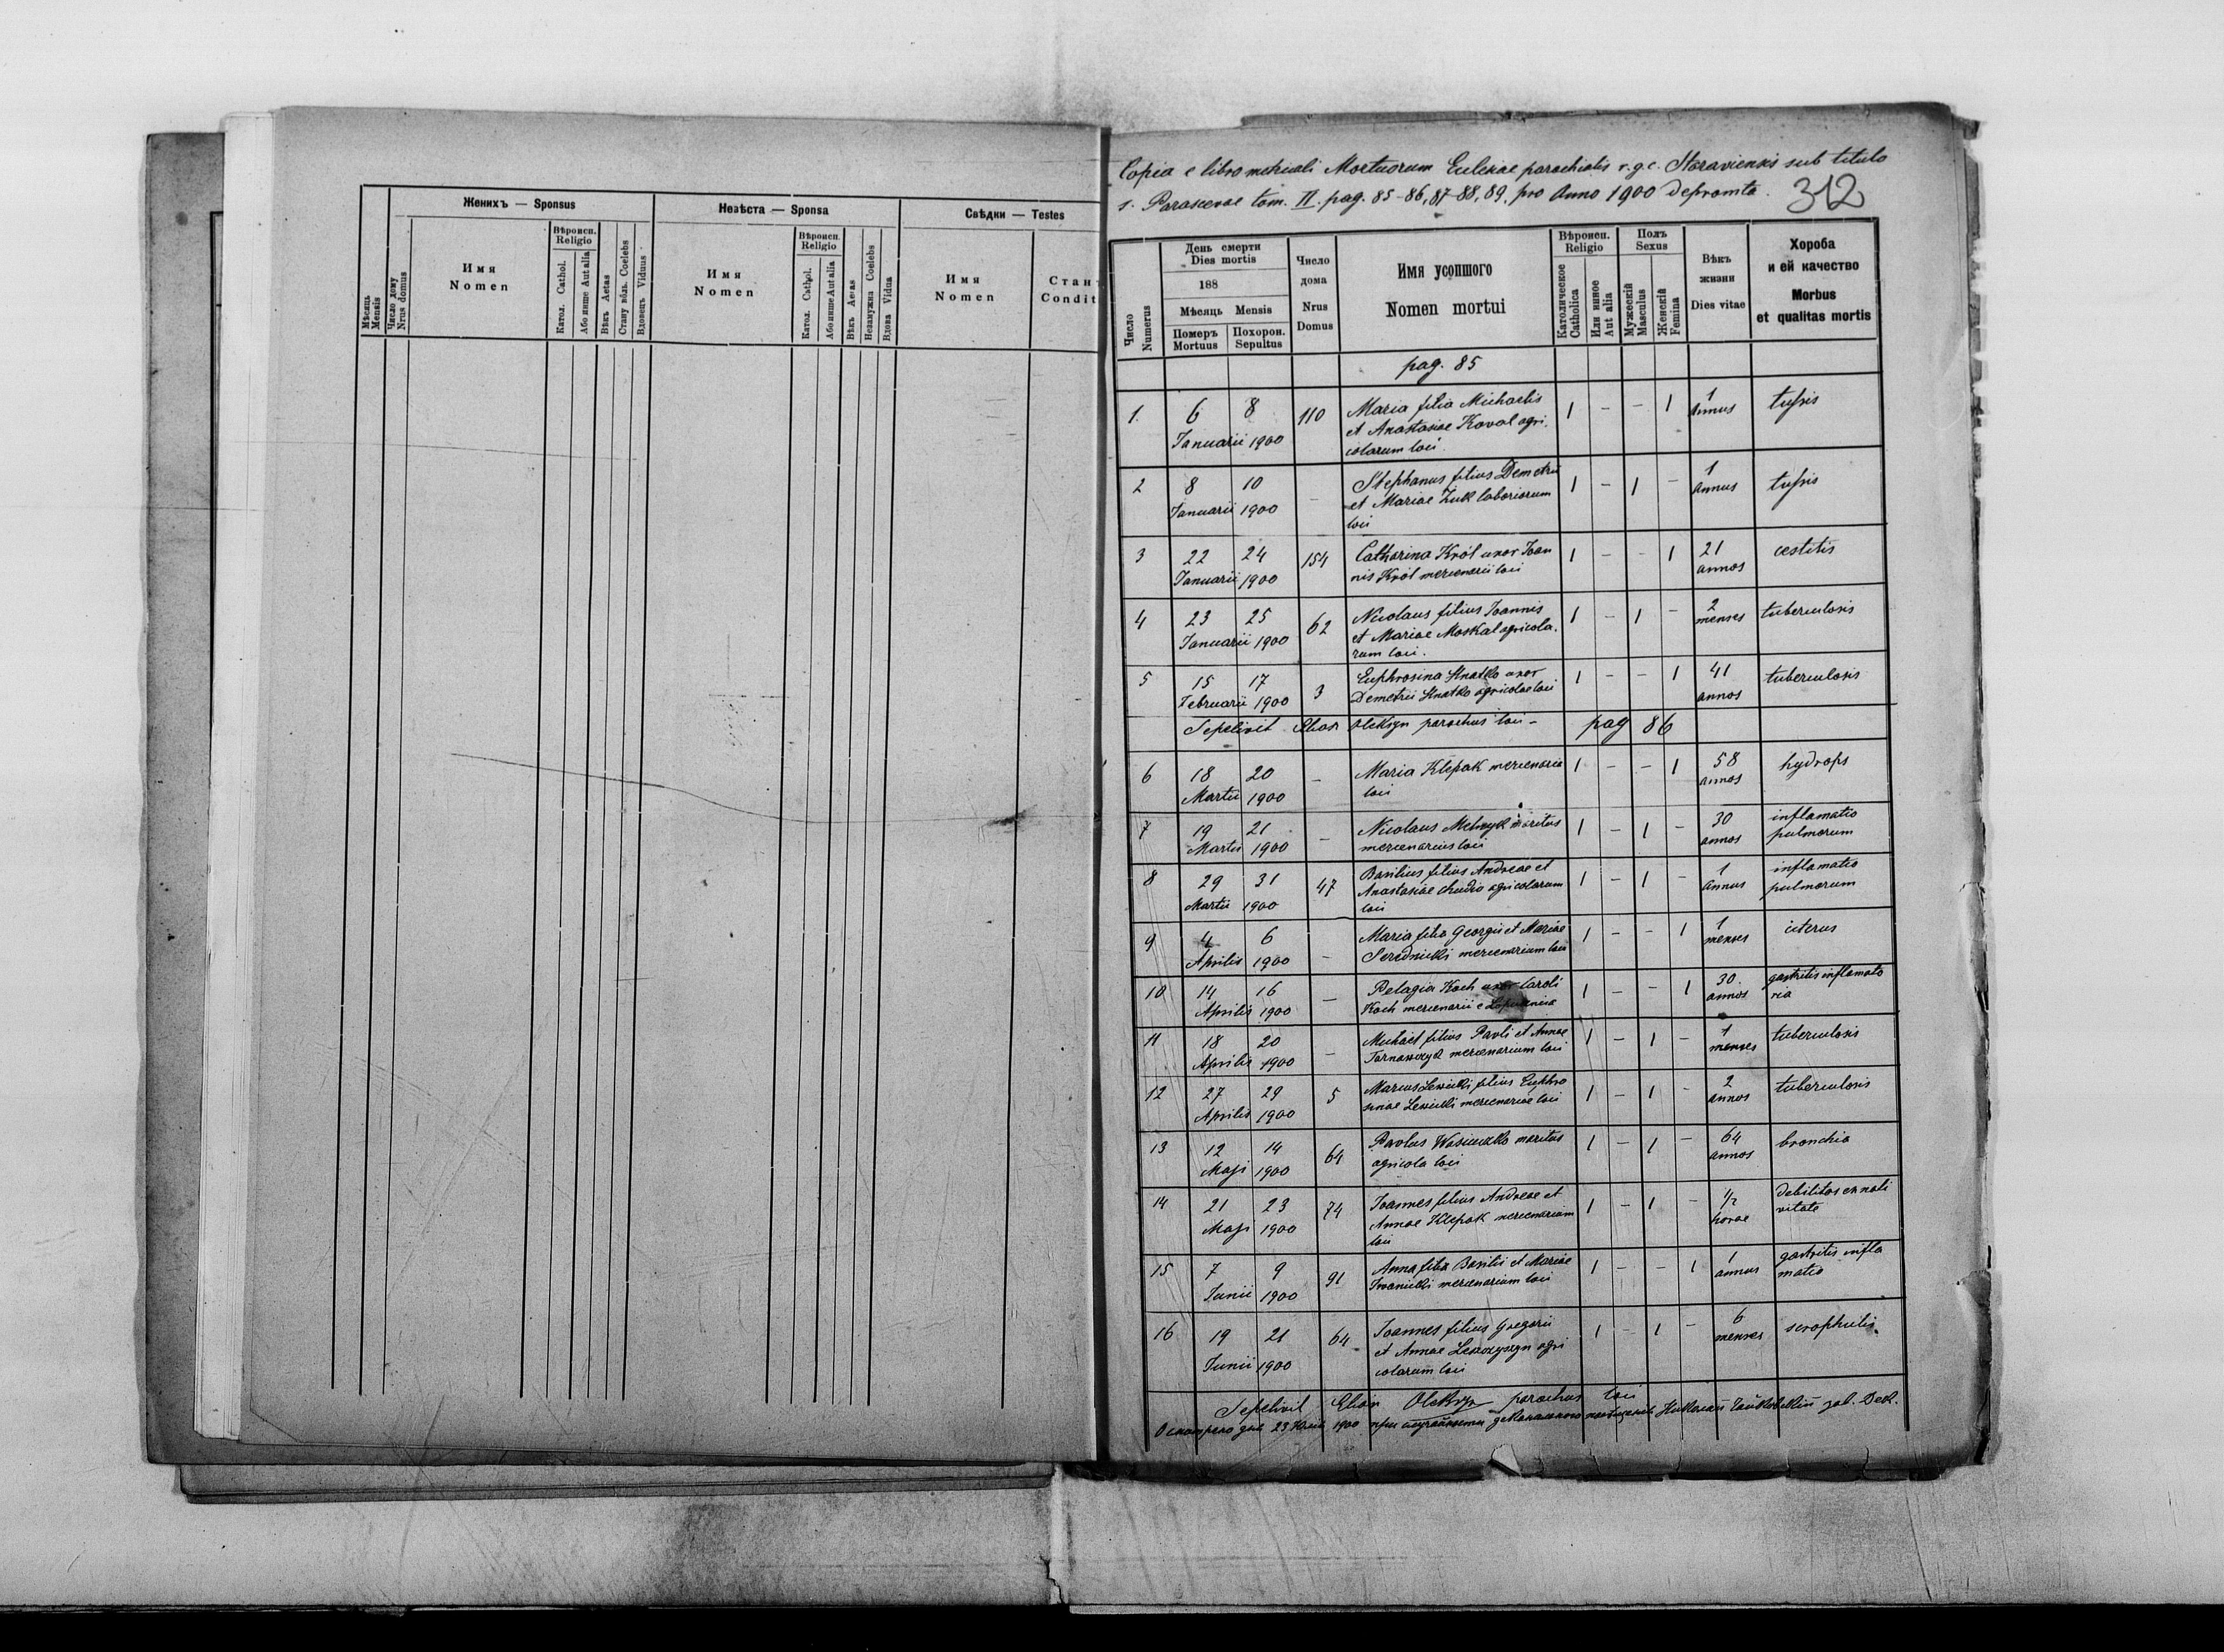 Женихъ — Sponsus
Невѣста — Sponsa
Свѣдки — Testes
Мѣсяць
Mensis
Число дому
Nrus domus
Имя
Nomen
Вѣроисп.
Religio
Катол. Cathol.
Або инше Aut alia
Вѣкъ Aetas
Стану вôль. Coelebs
Вдовець Viduus
Имя
Nomen
Вѣроисп.
Religio
Катол. Cathol.
Або инше Aut alia
Вѣкъ Aetas
Незамужна Coelebs
Вдова Vidua
Имя
Nomen
Стан
Condit
Copia e libro metricali Mortuorum Ecclesiae parochialis r.g.c. Staraviensis sub titulo
s. Parascevae tom. II. pag. 85-86, 87-88, 89, pro Anno 1900 depromta.
312
Число
Numerus
День смерти
Dies mortis
188
Мѣсяць Mensis
Померъ
Mortuus
Похорон.
Sepultus
Число
дома
Nrus
Domus
Имя усопшого
Nomen mortui
Вѣроисп.
Religio
Католическое
Catholica
Или инное
Aut alia
Полъ
Sexus
Мужескій
Masculus
Женскій
Femina
Вѣкъ
жизни
Dies vitae
Хороба
и ей качество
Morbus
et qualitas mortis
pag. 85
1. 6 8 110 Maria filia Michaelis 1 - - 1 1 tussis
Januarii 1900 et Anastasiae Koval agri- annus
colarum loci.
2 8 10 - Stephanus filius Demetrii 1 - 1 - 1 tussis
Januarii 1900 et Mariae Żuk laboriorum annus
loci
3 22 24 154 Catharina Król uxor Joan 1 - - 1 21 cestitis
Januarii 1900 nis Król mercenarii loci annos
4 23 25 62 Nicolaus filius Joannis 1 - 1 - 2 tuberculosis
Januarii 1900 et Mariae Moskal agricola- menses
rum loci.
5 15 17 3 Euphrosina Hnatko uxor 1 - - 1 41 tuberculosis
Februarii 1900 Demetrii Hnatko agricolae loci annos
Sepelivit Elias Oleksyn parochus loci - pag 86
6 18 20 - Maria Klepak mercenaria 1 - - 1 58 hydrops
Martii 1900 loci annos
7 19 21 - Nicolaus Melnyk maritus 1 - 1 - 30 inflamatio
Martii 1900 mercenarius loci annos pulmorum
8 29 31 47 Basilius filius Andreae et 1 - 1 - 1 inflamatio
Martii 1900 Anastasiae Chudio agricolarum annus pulmorum
loci
9 4 6 - Maria filia Georgii et Mariae 1 - - 1 1 icterus
Aprilis 1900 Serednicki mercenarium loci menses
10 14 16 - Pelagia Koch uxor Caroli 1 - - 1 30. gastritis inflamato
Aprilis 1900 Koch mercenarii e annos ria
11 18 20 - Michael filius Pavli et Annae 1 - 1 - 1 tuberculosis
Aprilis 1900 Tarnawczyk mercenarium loci menses
12 27 29 5 Marcus Lewicki filius Euphro 1 - 1 - 2 tuberculosis
Aprilis 1900 sinae Lewicki mercenariae loci annos
13 12 14 64 Pavlus Wasieczko maritus 1 - 1 - 64 bronchia
Maji 1900 agricola loci annos
14 21 23 74 Joannes filius Andreae et 1 - 1 - 1/2 debilitas ex nati
Maji 1900 Annae Klepak mercenarium horae vitate
loci
15 7 9 91 Anna filia Basilii et Mariae 1 - - 1 1 gastritis infla
Junii 1900 Iwanicki mercenarium loci annus matio
16 19 21 64 Joannes filius Gregorii 1 - 1 - 6 scrophulis
Junii 1900 et Annae agri menses
colarum loci
Sepelivit Elias Oleksyn parochus loci
дня 23 1900 при деканального Николай Dek.